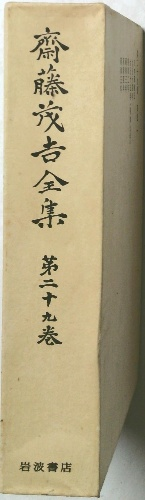 齋藤茂吉全集
第二十九卷
岩波書店